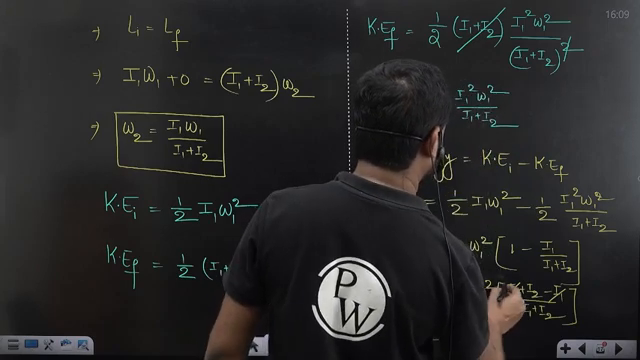 16:09
⇒ L₁ = L_f
⇒ I₁ω₁ + 0 = (I₁+I₂)ω₂
⇒ ω₂ = I₁ω₁/(I₁+I₂)
K·Eᵢ = 1/2 I₁ω₁²
K·E_f = 1/2 (I₁
K·E_f = 1/2 (I₁+I₂) I₁²ω₁²/(I₁+I₂)²
I₁²ω₁²/(I₁+I₂)
y = K·Eᵢ − K·E_f
= 1/2 I₁ω₁² − 1/2 I₁²ω₁²/(I₁+I₂)
ω₁² [1 − I₁/(I₁+I₂)]
+I₂ − I₁/I₁+I₂]
PW